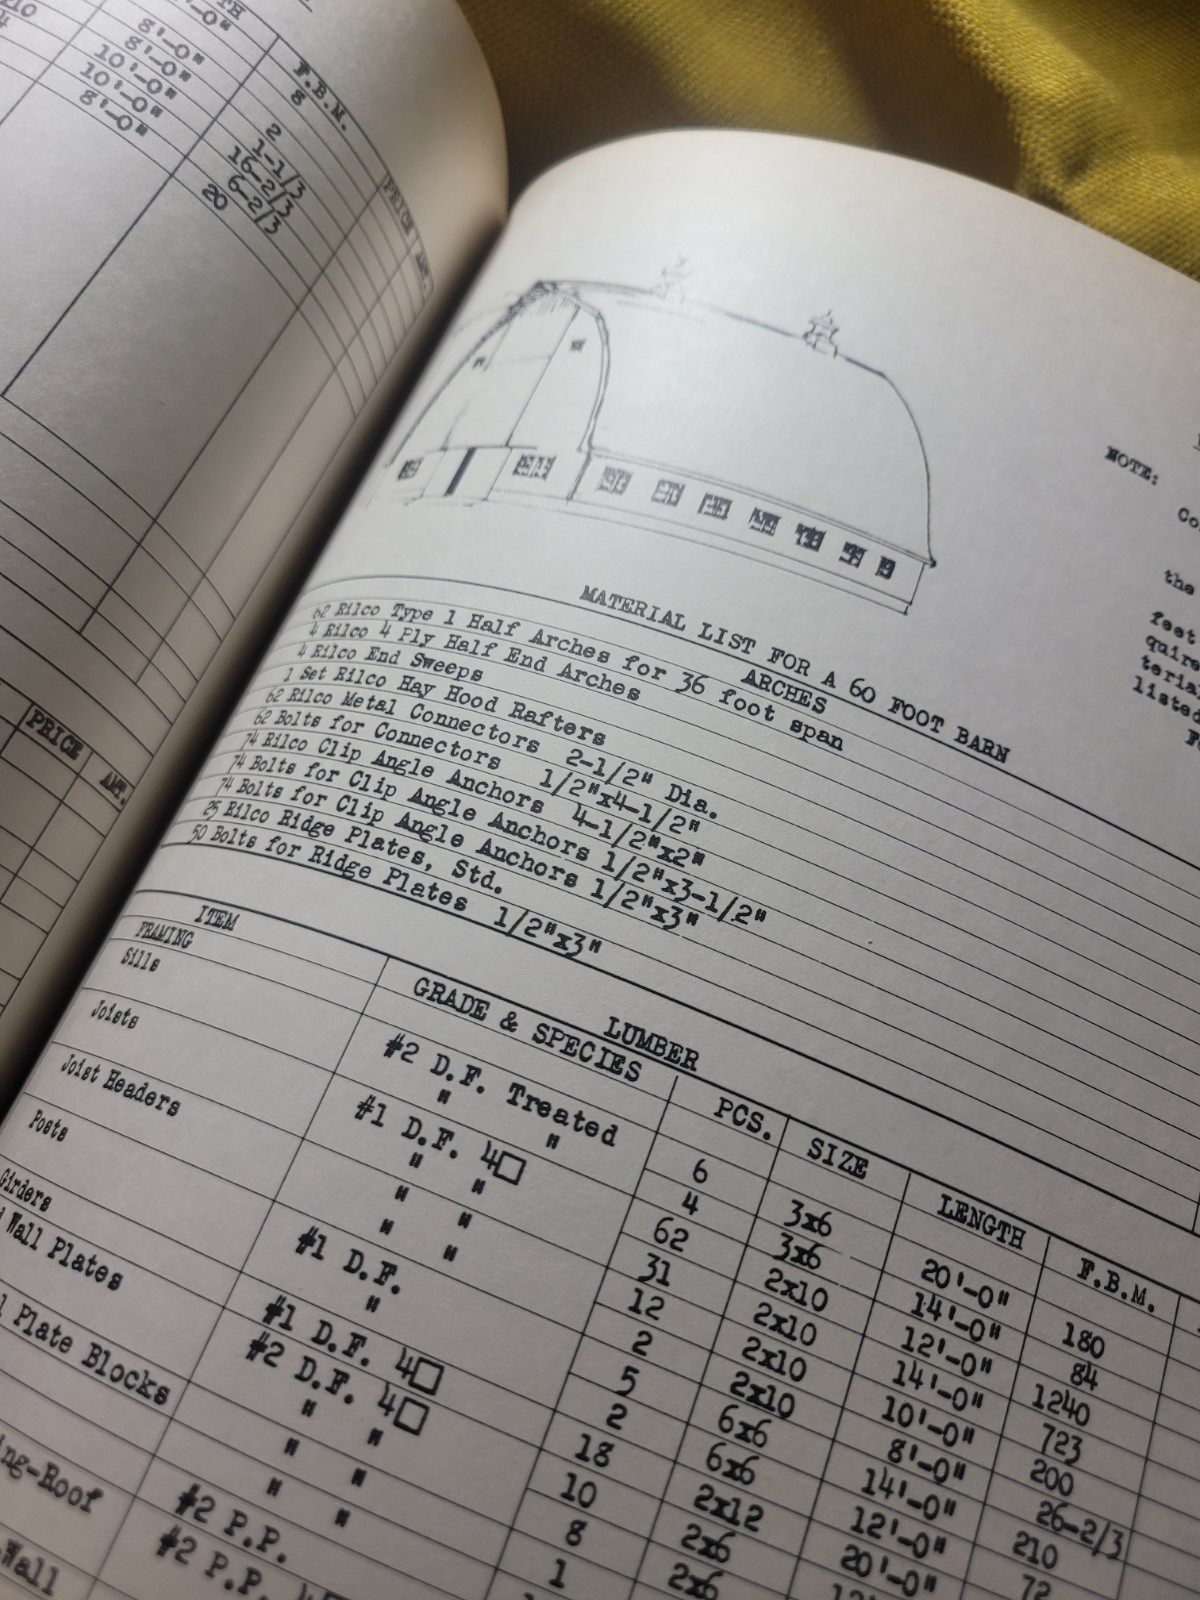 F.B.M.
8
8'-0" 2
8'-0" 1-1/3
10'-0" 16-2/3
10'-0" 6-2/3
8'-0" 20
PRICE AMT.
PRICE AMT.
NOTE:
the
feet
listed
MATERIAL LIST FOR A 60 FOOT BARN
ARCHES
62 Rilco Type 1 Half Arches for 36 foot span
4 Rilco 4 Ply Half End Arches
4 Rilco End Sweeps
1 Set Rilco Hay Hood Rafters
62 Rilco Metal Connectors 2-1/2" Dia.
62 Bolts for Connectors 1/2"x4-1/2"
74 Rilco Clip Angle Anchors 4-1/2"x2"
74 Bolts for Clip Angle Anchors 1/2"x3-1/2"
74 Bolts for Clip Angle Anchors 1/2"x3"
25 Rilco Ridge Plates, Std.
50 Bolts for Ridge Plates 1/2"x3"
LUMBER
ITEM GRADE & SPECIES PCS. SIZE LENGTH F.B.M.
FRAMING
Sills #2 D.F. Treated 6 3x6 20'-0" 180
" " 4 3x6 14'-0" 84
Joists #1 D.F. 4□ 62 2x10 12'-0" 1240
" " 31 2x10 14'-0" 723
Joist Headers " " 12 2x10 10'-0" 200
" " 2 2x10 8'-0" 26-2/3
Posts #1 D.F. 5 6x6 14'-0" 210
" 2 6x6 12'-0" 72
Girders #1 D.F. 4□ 18 2x12 20'-0"
Wall Plates #2 D.F. 4□ 10 2x6
" " 8 2x6
Plate Blocks " " 1
" "
-Roof #2 P.P.
-Wall #2 P.P.